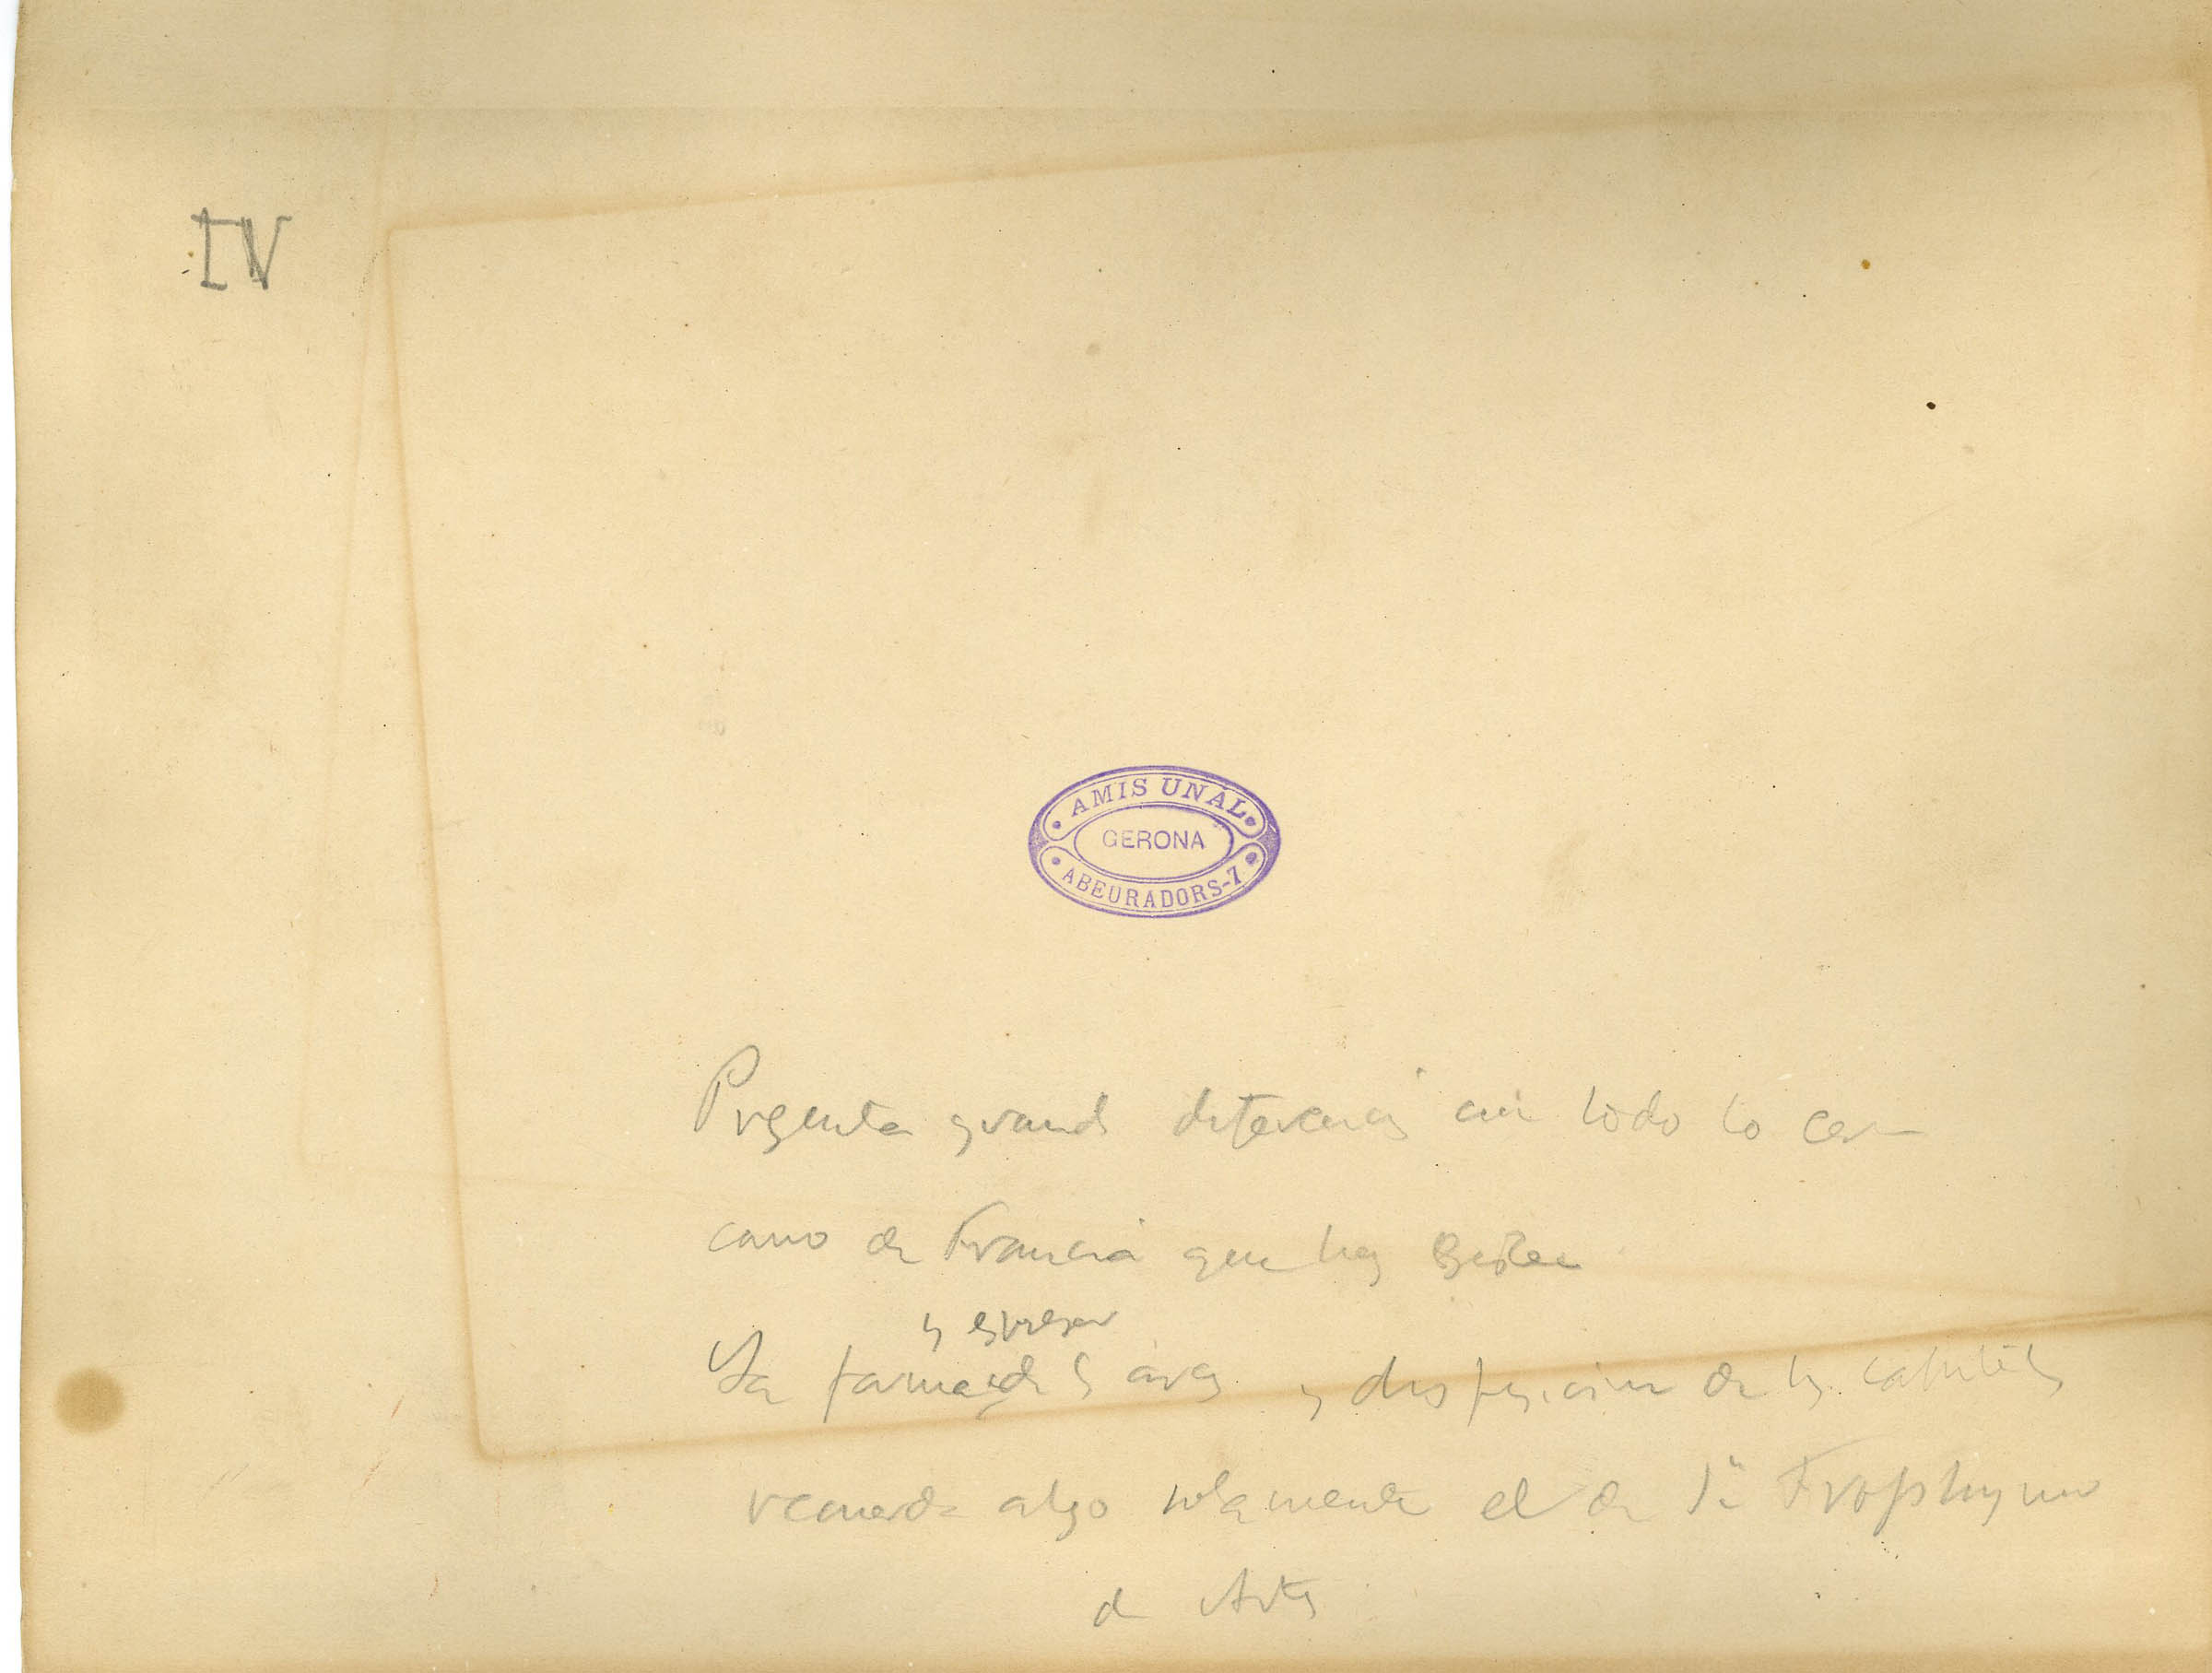 IV
AMIS UNAL
GERONA
ABEURADORS-7
Presenta grandes diferencias con todo lo cer-
cano de Francia que hoy
y espesor
La forma de los arcos y disposicion de los capiteles
recuerda algo solamente el de Sn Trophymo
de Arles